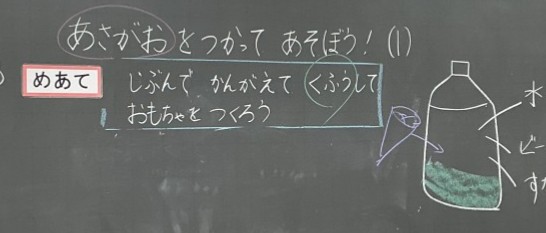 あさがおをつかって あそぼう！(1)
めあて
じぶんで かんがえて くふうして
おもちゃを つくろう
水
ビー